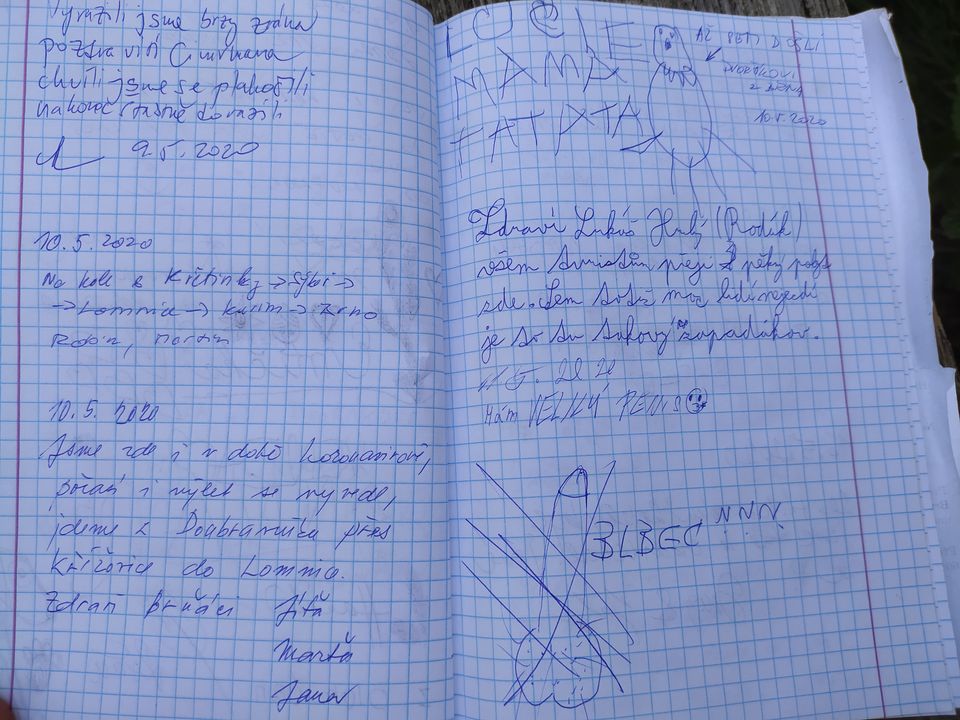 Vyrazili jsme brzy zrána
pozdravit Cimrmana
chvíli jsme se plahočili
nakonec šťastně dorazili
9.5.2020
10.5.2020
Na kole z Křetínky → Sýkoř →
→ Lomnice → Kuřim → Brno
Robin, Martin
10.5. 2020
Jsme zde i v době koronavirové,
počasí i výlet se vyvedl,
jdeme z Doubravníka přes
do Lomnice.
Zdraví brňáci Jiťa
Marťa
Jana
LUCIE
MAMA
TATA
AŽ DOŠLI
10.5.2020
Zdraví Lukáš (Rodák)
všem turistům přeji pěkný pobyt
zde. Sem totiž moc lidí nejezdí
je to tu takový zapadákov.
11.5. 2020
Mám VELKÝ PENIS
BLBEC